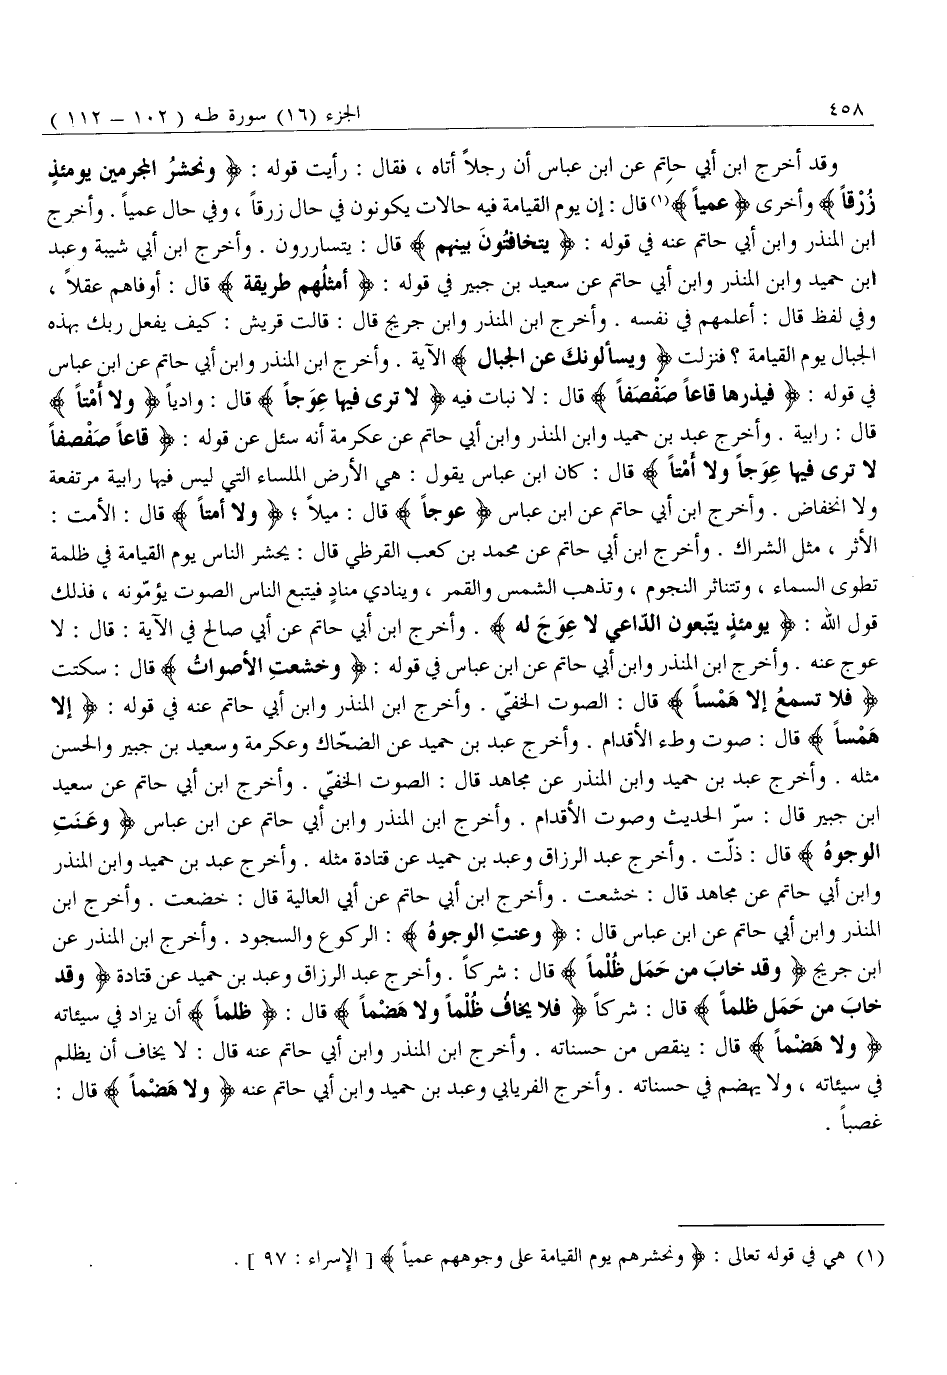 ٤٥٨
الجزء (١٦) سورة طه ( ١٠٢ – ١١٢ )
وقد أخرج ابن أبي حاتم عن ابن عباس أن رجلاً أتاه ، فقال : رأيت قوله : ﴿ ونحشرُ المجرمين يومئذٍ
زُرْقاً ﴾ وأخرى ﴿ عمياً ﴾(١) قال : إن يوم القيامة فيه حالات يكونون في حال زرقاً ، وفي حال عمياً . وأخرج
ابن المنذر وابن أبي حاتم عنه في قوله : ﴿ يتخافتُونَ بينهم ﴾ قال : يتساررون . وأخرج ابن أبي شيبة وعبد
ابن حميد وابن المنذر وابن أبي حاتم عن سعيد بن جبير في قوله : ﴿ أمثلُهم طريقة ﴾ قال : أوفاهم عقلاً ،
وفي لفظ قال : أعلمهم في نفسه . وأخرج ابن المنذر وابن جريج قال : قالت قريش : كيف يفعل ربك بهذه
الجبال يوم القيامة ؟ فنزلت ﴿ ويسألونكَ عن الجبال ﴾ الآية . وأخرج ابن المنذر وابن أبي حاتم عن ابن عباس
في قوله : ﴿ فيذرها قاعاً صَفْصَفاً ﴾ قال : لا نبات فيه ﴿ لا ترى فيها عِوَجاً ﴾ قال : وادياً ﴿ ولا أَمْتاً ﴾
قال : رابية . وأخرج عبد بن حميد وابن المنذر وابن أبي حاتم عن عكرمة أنه سئل عن قوله : ﴿ قاعاً صَفْصفاً
لا ترى فيها عِوَجاً ولا أَمْتاً ﴾ قال : كان ابن عباس يقول : هي الأرض الملساء التي ليس فيها رابية مرتفعة
ولا انخفاض . وأخرج ابن أبي حاتم عن ابن عباس ﴿ عوجاً ﴾ قال : ميلاً ؛ ﴿ ولا أمتاً ﴾ قال : الأمت :
الأثر ، مثل الشراك . وأخرج ابن أبي حاتم عن محمد بن كعب القرظي قال : يحشر الناس يوم القيامة في ظلمة
تطوى السماء ، وتتناثر النجوم ، وتذهب الشمس والقمر ، وينادي منادٍ فيتبع الناس الصوت يؤمّونه ، فذلك
قول الله : ﴿ يومئذٍ يتّبعون الدّاعي لا عِوَجَ له ﴾ . وأخرج ابن أبي حاتم عن أبي صالح في الآية : قال : لا
عوج عنه . وأخرج ابن المنذر وابن أبي حاتم عن ابن عباس في قوله : ﴿ وخشعتِ الأصواتُ ﴾ قال : سكتت
﴿ فلا تسمعُ إلا هَمْساً ﴾ قال : الصوت الخفيّ . وأخرج ابن المنذر وابن أبي حاتم عنه في قوله : ﴿ إلا
هَمْساً ﴾ قال : صوت وطء الأقدام . وأخرج عبد بن حميد عن الضحّاك وعكرمة وسعيد بن جبير والحسن
مثله . وأخرج عبد بن حميد وابن المنذر عن مجاهد قال : الصوت الخفيّ . وأخرج ابن أبي حاتم عن سعيد
ابن جبير قال : سرّ الحديث وصوت الأقدام . وأخرج ابن المنذر وابن أبي حاتم عن ابن عباس ﴿ وعَنَتِ
الوجوهُ ﴾ قال : ذلّت . وأخرج عبد الرزاق وعبد بن حميد عن قتادة مثله . وأخرج عبد بن حميد وابن المنذر
وابن أبي حاتم عن مجاهد قال : خشعت . وأخرج ابن أبي حاتم عن أبي العالية قال : خضعت . وأخرج ابن
المنذر وابن أبي حاتم عن ابن عباس قال : ﴿ وعنتِ الوجوهُ ﴾ : الركوع والسجود . وأخرج ابن المنذر عن
ابن جريج ﴿ وقد خابَ من حَمَل ظُلْماً ﴾ قال : شركاً . وأخرج عبد الرزاق وعبد بن حميد عن قتادة ﴿ وقد
خابَ من حَمَل ظلماً ﴾ قال : شركاً ﴿ فلا يخافُ ظُلْماً ولا هَضْماً ﴾ قال : ﴿ ظلماً ﴾ أن يزاد في سيئاته
﴿ ولا هضْماً ﴾ قال : ينقص من حسناته . وأخرج ابن المنذر وابن أبي حاتم عنه قال : لا يخاف أن يظلم
في سيئاته ، ولا يهضم في حسناته . وأخرج الفريابي وعبد بن حميد وابن أبي حاتم عنه ﴿ ولا هَضْماً ﴾ قال :
غصباً .
(١) هي في قوله تعالى : ﴿ ونحشرهم يوم القيامة على وجوههم عمياً ﴾ [ الإسراء : ٩٧ ] .